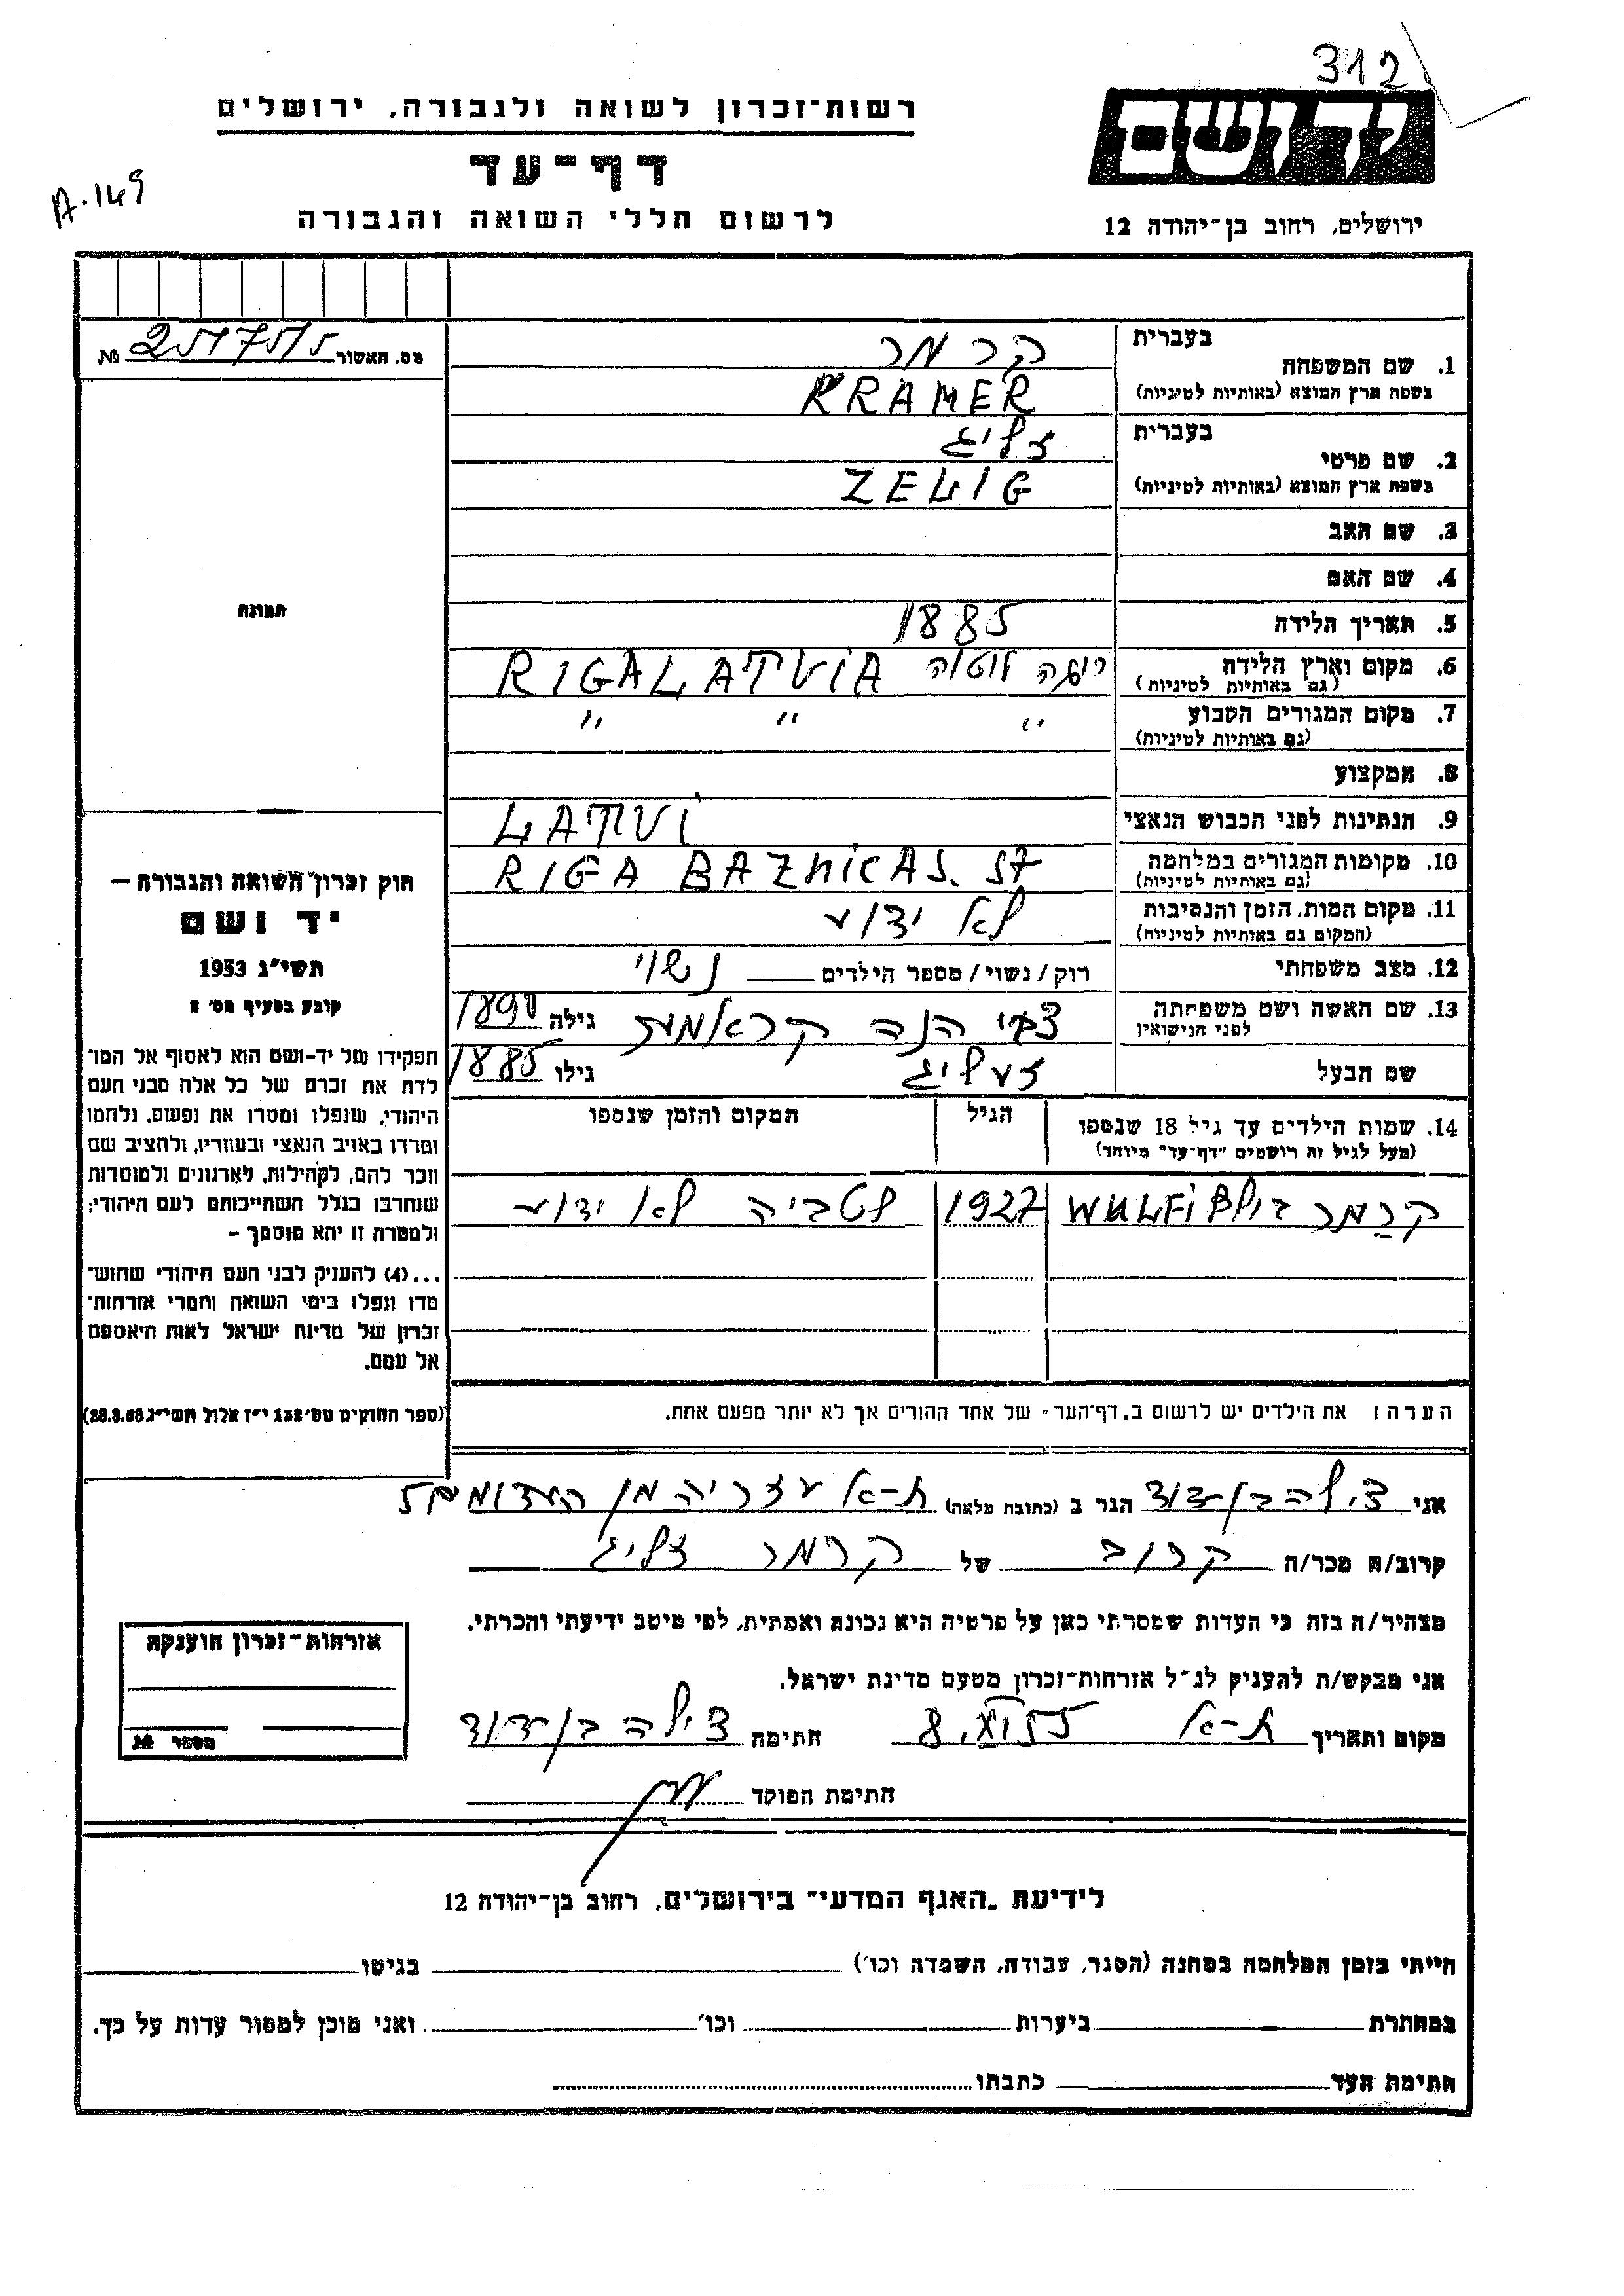 312
A-149
יד ושם
ירושלים, רחוב בן־יהודה 12
רשות־זכרון לשואה ולגבורה, ירושלים
דף־עד
לרשום חללי השואה והגבורה
מס. האשור 251755 №
1. שם המשפחה בעברית קרמר
בשפת ארץ המוצא (באותיות לטיניות) KRAMER
2. שם פרטי בעברית זליג
בשפת ארץ המוצא (באותיות לטיניות) ZELIG
3. שם האב
4. שם האם
5. תאריך הלידה 1885
6. מקום וארץ הלידה ריגה לטויה RIGA LATVIA
(גם באותיות לטיניות)
7. מקום המגורים הקבוע " " "
(גם באותיות לטיניות)
8. המקצוע
9. הנתינות לפני הכבוש הנאצי LATVI
10. מקומות המגורים במלחמה RIGA BAZNICAS. 57
(גם באותיות לטיניות)
11. מקום המות, הזמן והנסיבות לא ידוע
(המקום גם באותיות לטיניות)
12. מצב משפחתי רוק/נשוי/מספר הילדים נשוי
13. שם האשה ושם משפחתה הנה גילה 1890
לפני הנישואין
שם הבעל זעליג גילו 1885
14. שמות הילדים עד גיל 18 שנספו הגיל המקום והזמן שנספו
(מעל לגיל זה רושמים "דף־עד" מיוחד)
קרמר WULF 1927 לטביה לא ידוע
הערה: את הילדים יש לרשום ב„דף־העד" של אחד ההורים אך לא יותר מפעם אחת.
תמונה
חוק זכרון השואה והגבורה –
יד ושם
תשי"ג 1953
קובע בסעיף מס' 2
תפקידו של יד-ושם הוא לאסוף אל המו־
לדת את זכרם של כל אלה מבני העם
היהודי, שנפלו ומסרו את נפשם, נלחמו
ומרדו באויב הנאצי ובעוזריו, ולהציב שם
וזכר להם, לקהילות, לארגונים ולמוסדות
שנחרבו בגלל השתייכותם לעם היהודי;
ולמטרת זו יהא מוסמך –
...(4) להעניק לבני העם היהודי שהוש־
מדו ונפלו בימי השואה והמרי אזרחות־
זכרון של מדינת ישראל לאות היאספם
אל עמם.
(ספר החוקים מס' 132 י"ז אלול תשי"ג 28.8.53)
אני צילה בן-דוד הגר ב (כתובת מלאה) ת-א עזריה מן האדומים 5
קרוב/ה מכר/ה קרוב של קרמר זליג
מצהיר/ה בזה כי העדות שמסרתי כאן על פרטיה היא נכונה ואמתית, לפי מיטב ידיעתי והכרתי.
אני מבקש/ת להעניק לנ"ל אזרחות־זכרון מטעם מדינת ישראל.
מקום ותאריך ת-א 8. 55 חתימה צילה בן-דוד
חתימת הפוקד
אזרחות־זכרון הוענקה
מספר №
לידיעת „האגף המדעי" בירושלים, רחוב בן־יהודה 12
הייתי בזמן המלחמה במחנה (הסגר, עבודה, השמדה וכו') בגיטו
במחתרת ביערות וכו' ואני מוכן למסור עדות על כך.
חתימת העד כתבתו